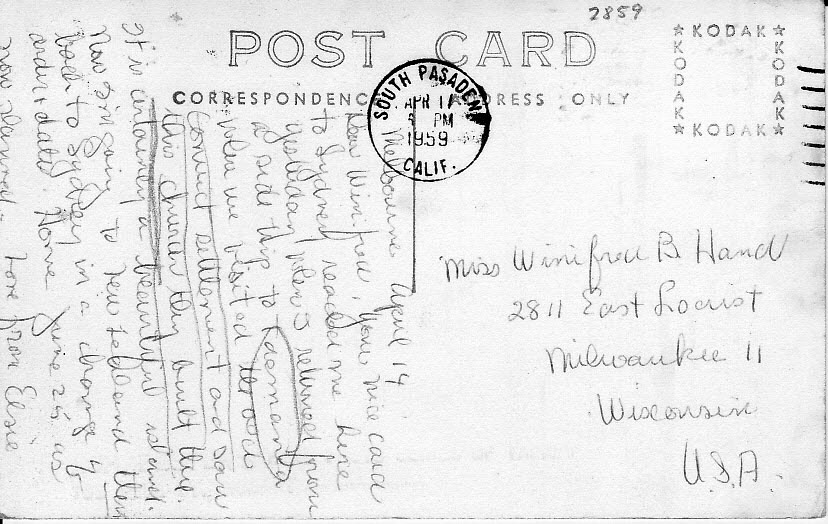 2859
POST CARD
CORRESPONDENCE ADDRESS ONLY
KODAK
KODAK
KODAK
KODAK
SOUTH PASADENA
APR 17
PM
1959
CALIF.
Melbourne April 14
Dear Winifred, your nice card
to Sydney reached me here
yesterday when I returned from
a side trip to Tasmania
when we visited the old
convict settlement and saw
this church they built there.
It is certainly a beautiful island.
Now I'm going to New Zealand then
back to Sydney in a change of
order & date. Home June 25 as
now planned. Love from Elsie
Miss Winifred B. Hand
2811 East Locust
Milwaukee 11
Wisconsin
U.S.A.